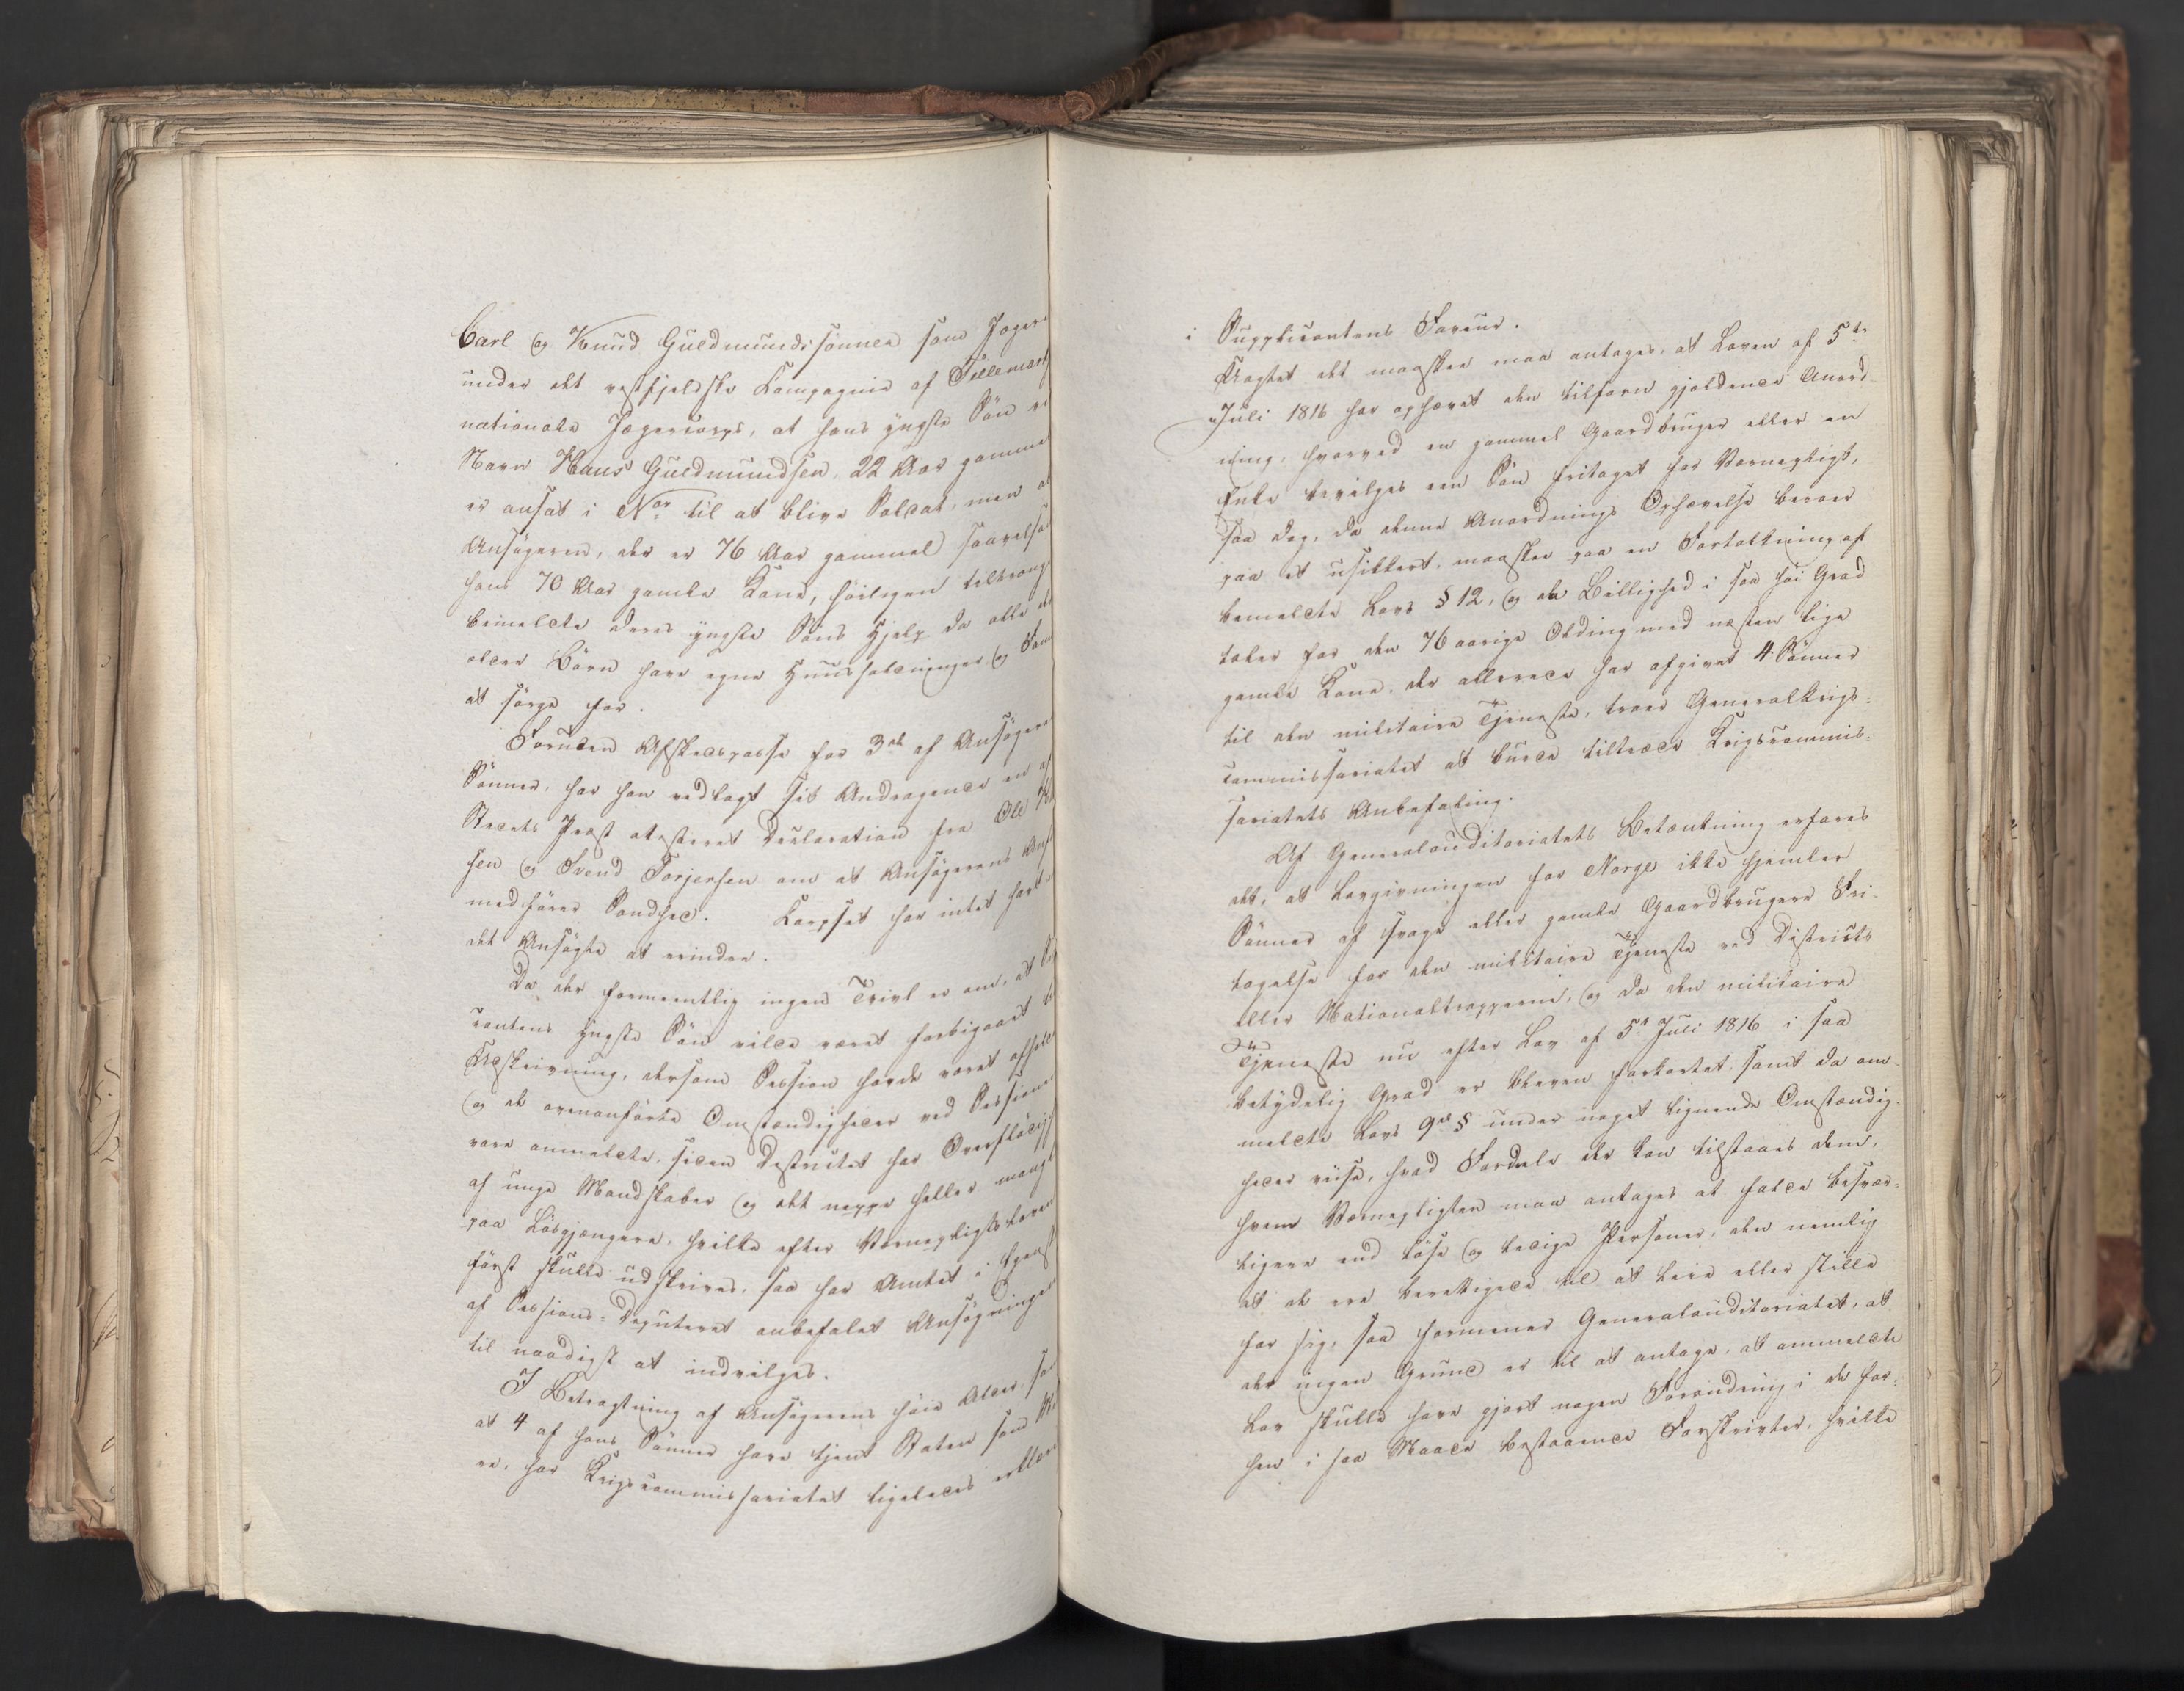 Carl og Knud Guldmundssønner som Jæger
under det vestfjeldske Kompagnie af Tellemark
nationale Jægercorps, at hans yngste Søn ved
Navn Hans Guldmundsen, 22 Aar gammel
er ansat i Nor til at blive Soldat, men at
Ansøgeren, der er 76 Aar gammel saavelsom
hans 70 Aar gamle Kone, høiligen tiltrænge
bemeldte deres yngste Søns Hjelp da alle de
ældre Børn have egne Huusholdninger og Fam
at sørge for.
Foruden Afskedspasse for 3de af Ansøgerens
Sønner, har han vedlagt sit Andragende en af
Stedets Præst atesteret Declaration fra Ole
sen og Svend Torjersen om at Ansøgerens Ansø
medfører Sandhed. Korpset har intet havt
det Ansøgte at erindre.
Da der formeentlig ingen Tvivl er om, at Su
cantens yngste Søn vilde været forbigaaet
Udskrivning, dersom Session havde været afholdt
og de ovenanførte Omstændigheder ved Sessionen
vare anmeldte, siden Destrictet har Overflødigh
af unge Mandskaber og det neppe heller mangl
paa Løsgjængere, hvilke efter Værnepligtsloven
først skulle udskrives, saa har Amtet i
af Sessions-Deputeret anbefalet Ansøgningen
til naadigst at indvilges.
I Betragtning af Ansøgerens høie Alder, sa
at 4 af hans Sønner have tjent Staten som
re, har Krigscommissariatet ligeledes erklær
i Supplicantens Faveur.
Uagtet det maaskee maa antages, at Loven af 5te
Juli 1816 har ophævet den tilforn gjældende Anord-
ning, hvorved en gammel Gaardbruger eller en
Enke bevilges een Søn fritaget for Værnepligt,
saa dog, da denne Anordnings Ophævelse beroer
paa et usikkert, maaskee paa en Fortolkning af
bemeldte Lovs § 12, og da Billighed i saa høi Grad
taler for den 76 aarige Olding med næsten lige
gamle Kone, der allerede har afgivet 4 Sønner
til den militaire Tjeneste, troer Generalkrigs-
commissariatet at burde tiltræde Krigscommis-
sariatets Anbefaling.
Af Generalauditoriatets Betænkning erfares
det, at Lovgivningen for Norge ikke hjemler
Sønner af svage eller gamle Gaardbrugere Fri-
tagelse for den militaire Tjeneste ved Districts
eller Nationaltropperne, og da den militaire
Tjeneste nu efter Lov af 5te Juli 1816 i saa
betydelig Grad er bleven forkortet, samt da om-
meldte Lovs 9de § under noget lignende Omstændig-
heder viise, hvad Fordele der kan tilstaaes dem,
hvem Værnepligten maa antages at falde besvær-
ligere end løse og ledige Personer, den nemlig
at de ere berettigede til at leie eller stille
for sig, saa formener Generalauditoriatet, at
der ingen Grund er til at antage, at ommeldte
Lov skulle have gjort nogen Forandring i de for-
hen i saa Maade bestaaende Forskrivter, hvilke